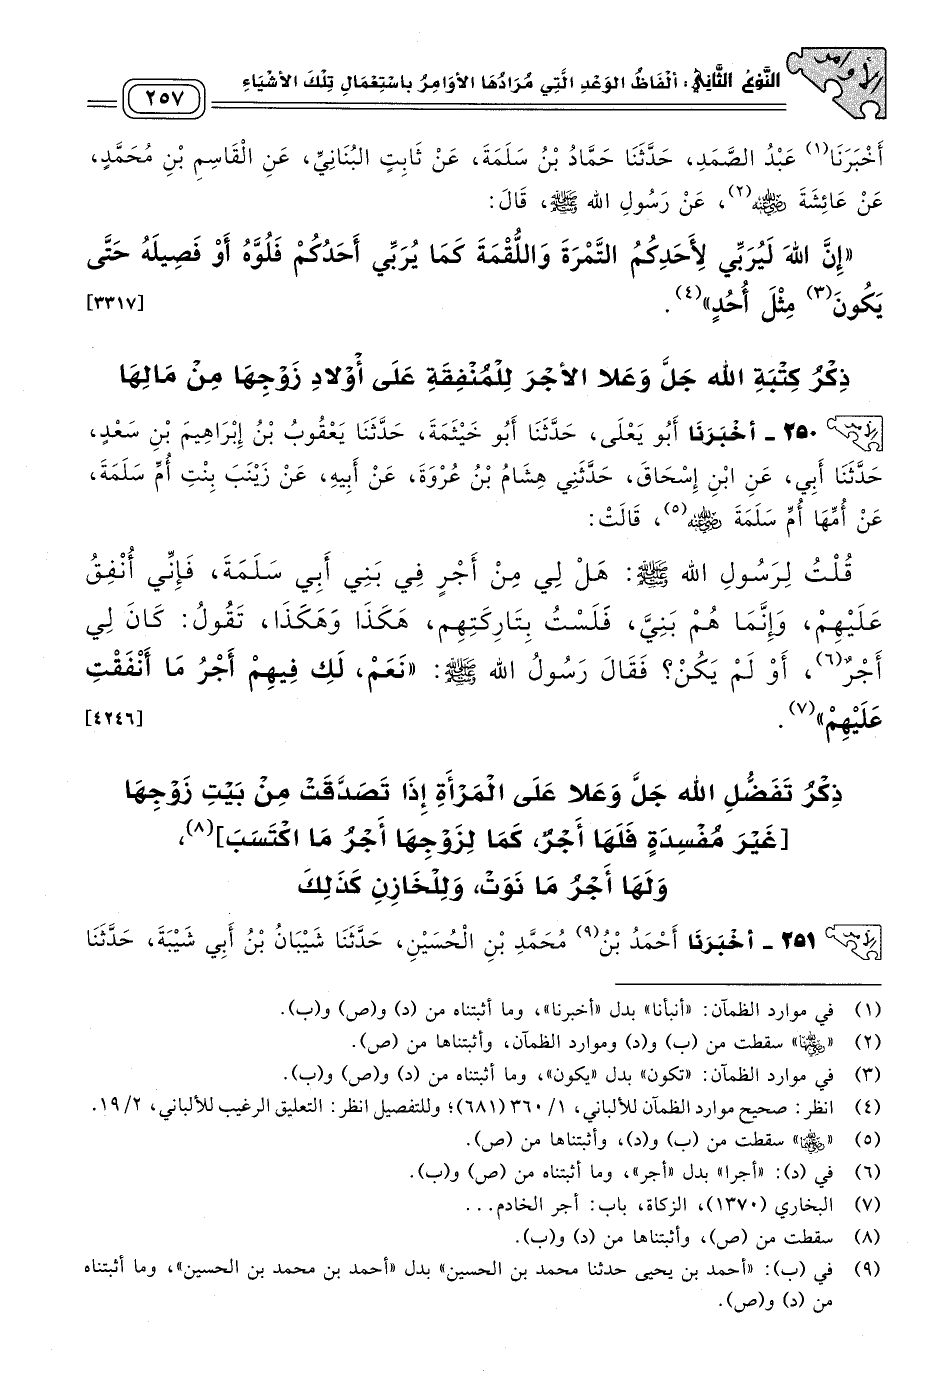 الأوامر
النَّوْعُ الثَّانِي: أَلْفَاظُ الوَعْدِ الَّتِي مُرَادُهَا الأَوَامِرُ بِاسْتِعْمَالِ تِلْكَ الأَشْيَاءِ
٢٥٧
أَخْبَرَنَا(١) عَبْدُ الصَّمَدِ، حَدَّثَنَا حَمَّادُ بْنُ سَلَمَةَ، عَنْ ثَابِتٍ البُنَانِيِّ، عَنِ الْقَاسِمِ بْنِ مُحَمَّدٍ،
عَنْ عَائِشَةَ ﵂(٢)، عَنْ رَسُولِ الله ﷺ، قَالَ:
«إِنَّ اللهَ لَيُرَبِّي لِأَحَدِكُمُ التَّمْرَةَ وَاللُّقْمَةَ كَمَا يُرَبِّي أَحَدُكُمْ فَلُوَّهُ أَوْ فَصِيلَهُ حَتَّى
يَكُونَ(٣) مِثْلَ أُحُدٍ»(٤). [٣٣١٧]
ذِكْرُ كِتْبَةِ الله جَلَّ وَعَلا الأَجْرَ لِلْمُنْفِقَةِ عَلَى أَوْلادِ زَوْجِهَا مِنْ مَالِهَا
٢٥٠ - أَخْبَرَنَا أَبُو يَعْلَى، حَدَّثَنَا أَبُو خَيْثَمَةَ، حَدَّثَنَا يَعْقُوبُ بْنُ إِبْرَاهِيمَ بْنِ سَعْدٍ،
حَدَّثَنَا أَبِي، عَنِ ابْنِ إِسْحَاقَ، حَدَّثَنِي هِشَامُ بْنُ عُرْوَةَ، عَنْ أَبِيهِ، عَنْ زَيْنَبَ بِنْتِ أُمِّ سَلَمَةَ،
عَنْ أُمِّهَا أُمِّ سَلَمَةَ ﵂(٥)، قَالَتْ:
قُلْتُ لِرَسُولِ الله ﷺ: هَلْ لِي مِنْ أَجْرٍ فِي بَنِي أَبِي سَلَمَةَ، فَإِنِّي أُنْفِقُ
عَلَيْهِمْ، وَإِنَّمَا هُمْ بَنِيَّ، فَلَسْتُ بِتَارِكَتِهِم، هَكَذَا وَهَكَذَا، تَقُولُ: كَانَ لِي
أَجْرٌ(٦)، أَوْ لَمْ يَكُنْ؟ فَقَالَ رَسُولُ الله ﷺ: «نَعَمْ، لَكِ فِيهِمْ أَجْرُ مَا أَنْفَقْتِ
عَلَيْهِمْ»(٧). [٤٢٤٦]
ذِكْرُ تَفَضُّلِ الله جَلَّ وَعَلا عَلَى الْمَرْأَةِ إِذَا تَصَدَّقَتْ مِنْ بَيْتِ زَوْجِهَا
[غَيْرَ مُفْسِدَةٍ فَلَهَا أَجْرٌ، كَمَا لِزَوْجِهَا أَجْرُ مَا اكْتَسَبَ](٨)،
وَلَهَا أَجْرُ مَا نَوَتْ، وَلِلْخَازِنِ كَذَلِكَ
٢٥١ - أَخْبَرَنَا أَحْمَدُ بْنُ(٩) مُحَمَّدِ بْنِ الْحُسَيْنِ، حَدَّثَنَا شَيْبَانُ بْنُ أَبِي شَيْبَةَ، حَدَّثَنَا
(١) في موارد الظمآن: «أنبأنا» بدل «أخبرنا»، وما أثبتناه من (د) و(ص) و(ب).
(٢) «﵂» سقطت من (ب) و(د) وموارد الظمآن، وأثبتناها من (ص).
(٣) في موارد الظمآن: «تكون» بدل «يكون»، وما أثبتناه من (د) و(ص) و(ب).
(٤) انظر: صحيح موارد الظمآن للألباني، ١/ ٣٦٠ (٦٨١)؛ وللتفصيل انظر: التعليق الرغيب للألباني، ٢/ ١٩.
(٥) «﵂» سقطت من (ب) و(د)، وأثبتناها من (ص).
(٦) في (د): «أجرا» بدل «أجر»، وما أثبتناه من (ص) و(ب).
(٧) البخاري (١٣٧٠)، الزكاة، باب: أجر الخادم...
(٨) سقطت من (ص)، وأثبتناها من (د) و(ب).
(٩) في (ب): «أحمد بن يحيى حدثنا محمد بن الحسين» بدل «أحمد بن محمد بن الحسين»، وما أثبتناه
من (د) و(ص).